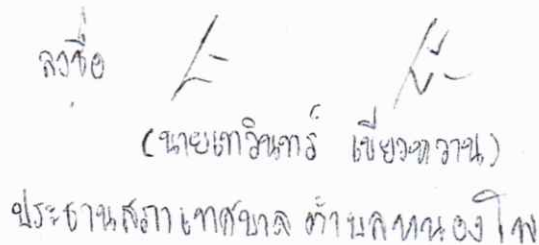 ลงชื่อ
(นายเทวินทร์ เขียวหวาน)
ประธานสภาเทศบาลตำบลหนองไผ่